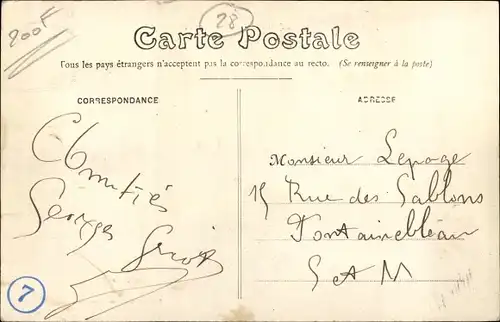 200F
28
Carte Postale
Tous les pays étrangers n'acceptent pas la correspondance au recto. (Se renseigner à la poste)
CORRESPONDANCE
Amitiés
Georges
7
ADRESSE
Monsieur Lepage
15 Rue des Sablons
Fontainebleau
S et M